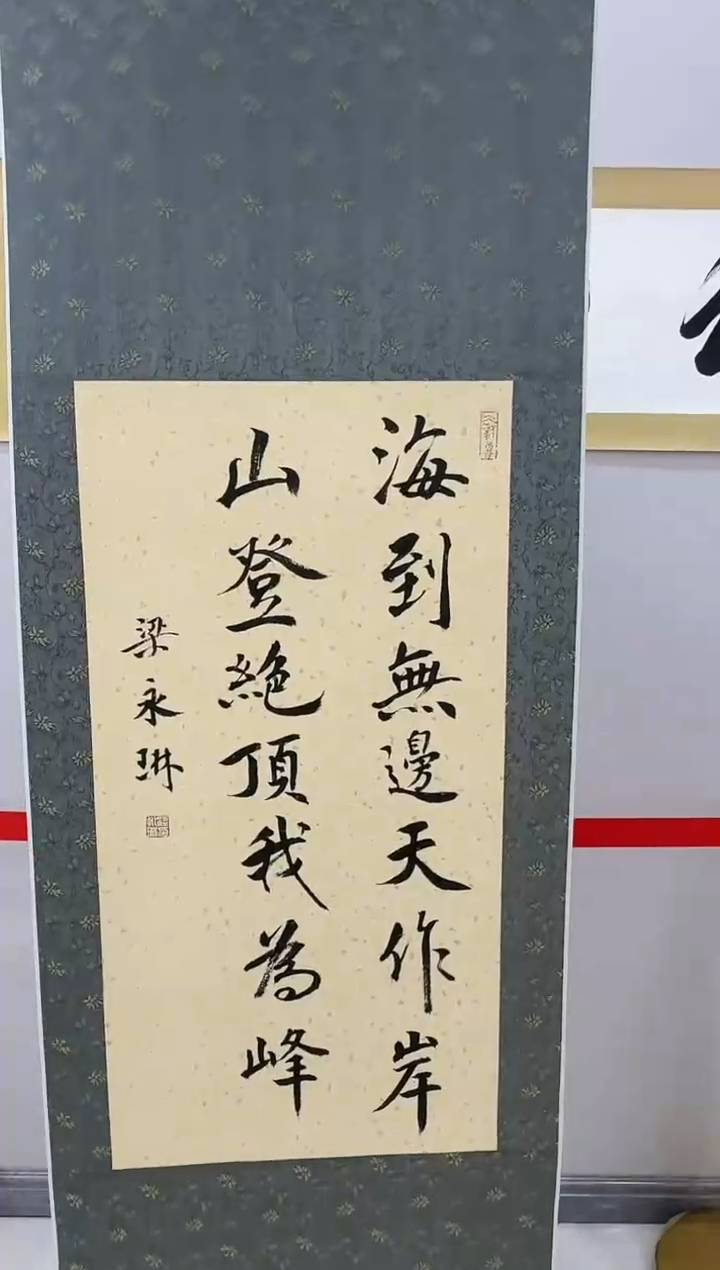 海到無邊天作岸
山登絶頂我為峰
梁永琳